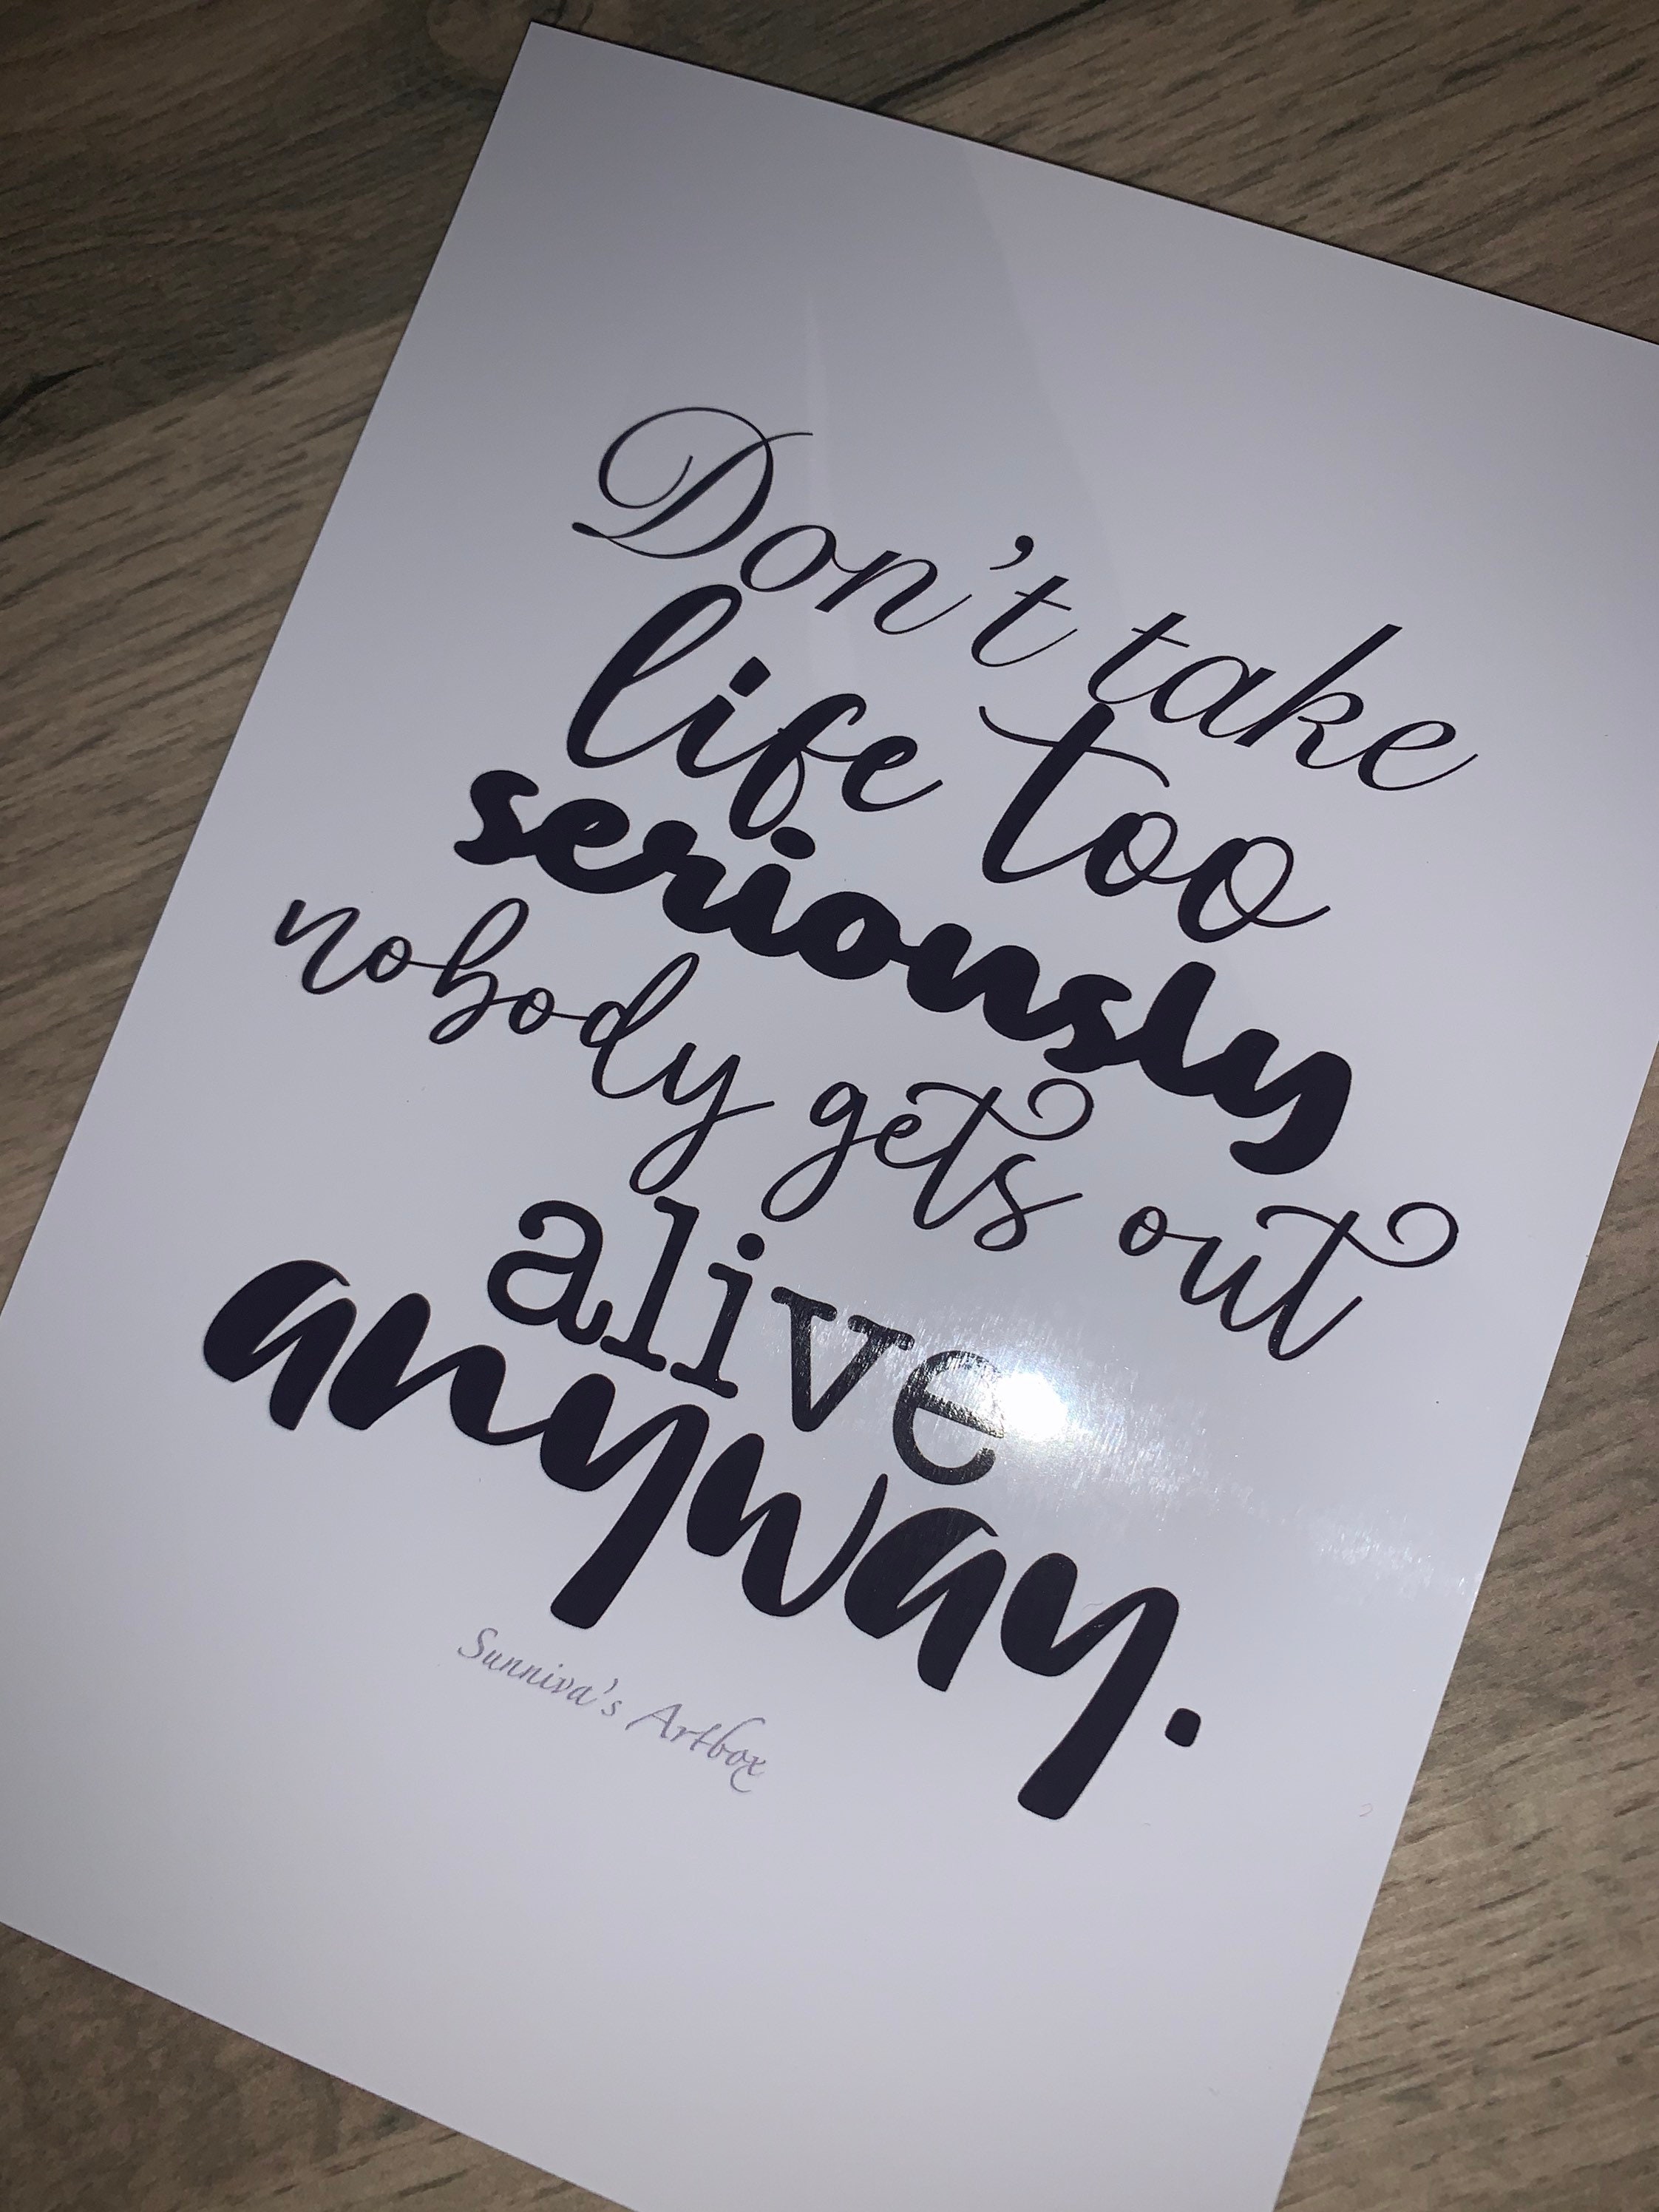 Don't take
life too
seriously
nobody gets out
alive
anyway.
Sunniva's Artbox